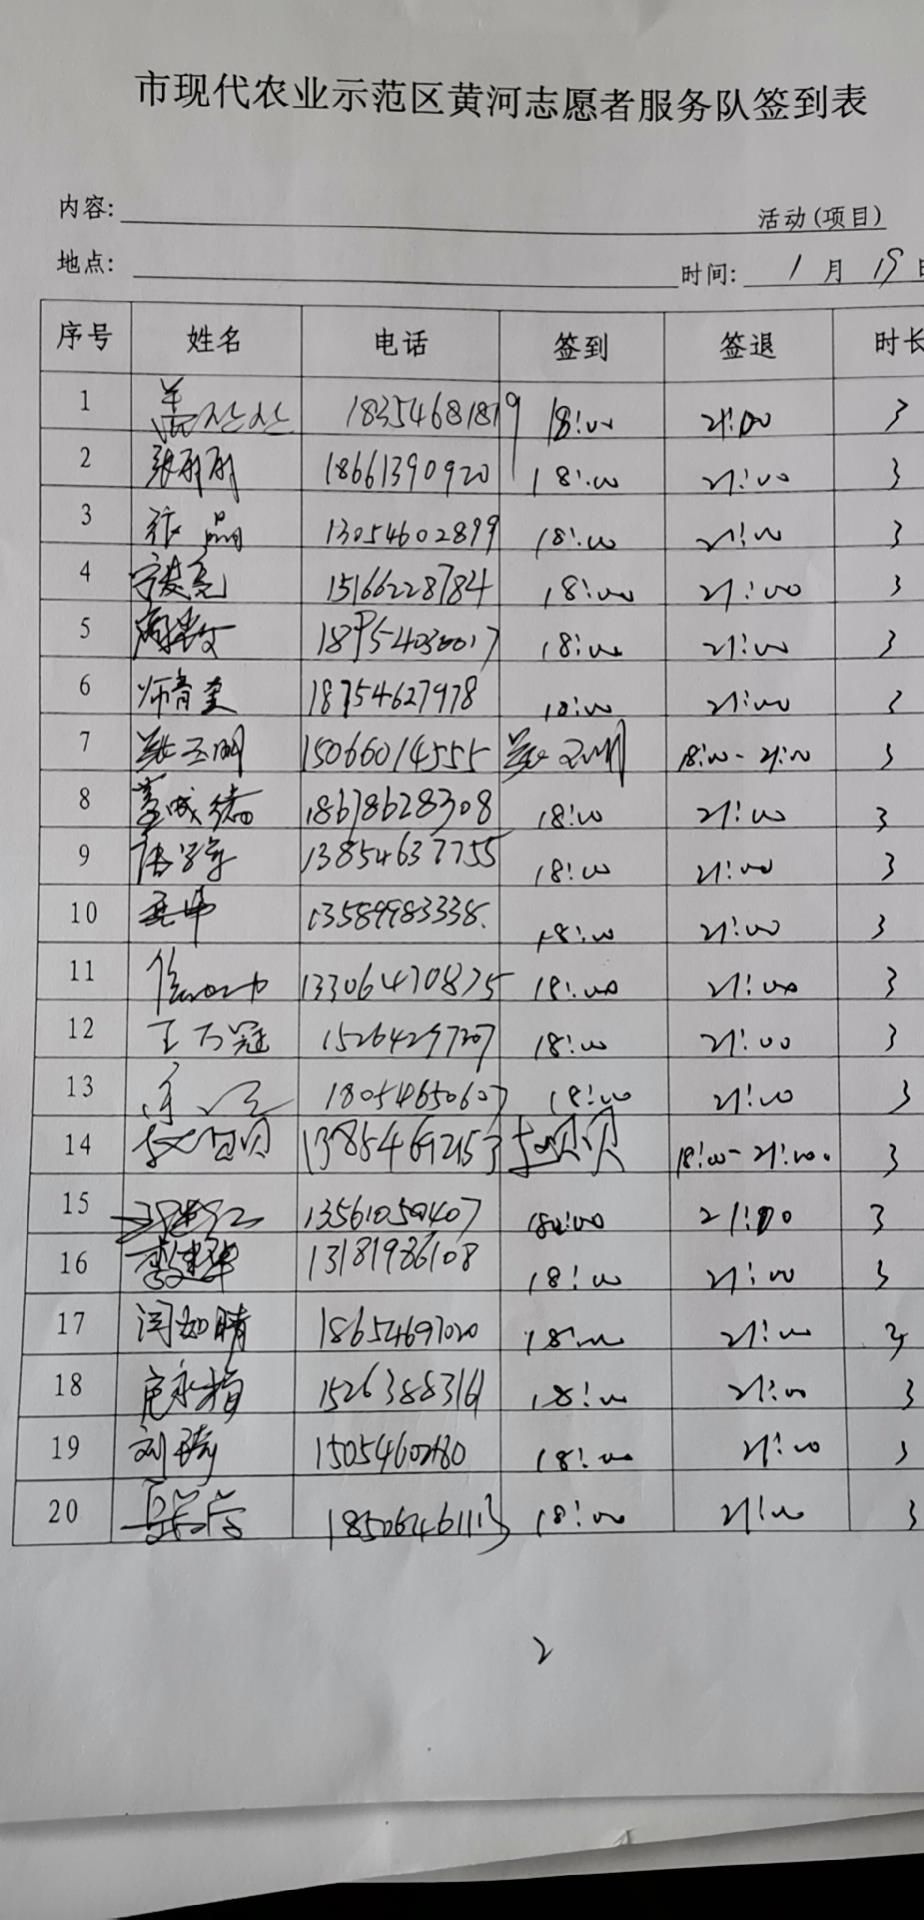 市现代农业示范区黄河志愿者服务队签到表
内容: 活动(项目)
地点: 时间: 1 月 19 日
序号 姓名 电话 签到 签退 时长
1 18354681819 18:00 21:00 3
2 张丽丽 18661390920 18:00 21:00 3
3 张晶 13054602899 18:00 21:00 3
4 15166228784 18:00 21:00 3
5 18:00 21:00 3
6 师青奎 18754627978 18:00 21:00 3
7 张玉明 15066014555 张玉明 18:00-21:00 3
8 盖成德 18678628308 18:00 21:00 3
9 13854637755 18:00 21:00 3
10 13589983338. 18:00 21:00 3
11 13306470875 18:00 21:00 3
12 王万冠 15264297207 18:00 21:00 3
13 18054650607 18:00 21:00 3
14 18:00-21:00 3
15 13561050407 18:00 21:00 3
16 李建华 13181986108 18:00 21:00 3
17 闫如晴 18654697020 18:00 21:00 3
18 15263883161 18:00 21:00 3
19 刘琦 18:00 21:00 3
20 18:00 21:00 3
2